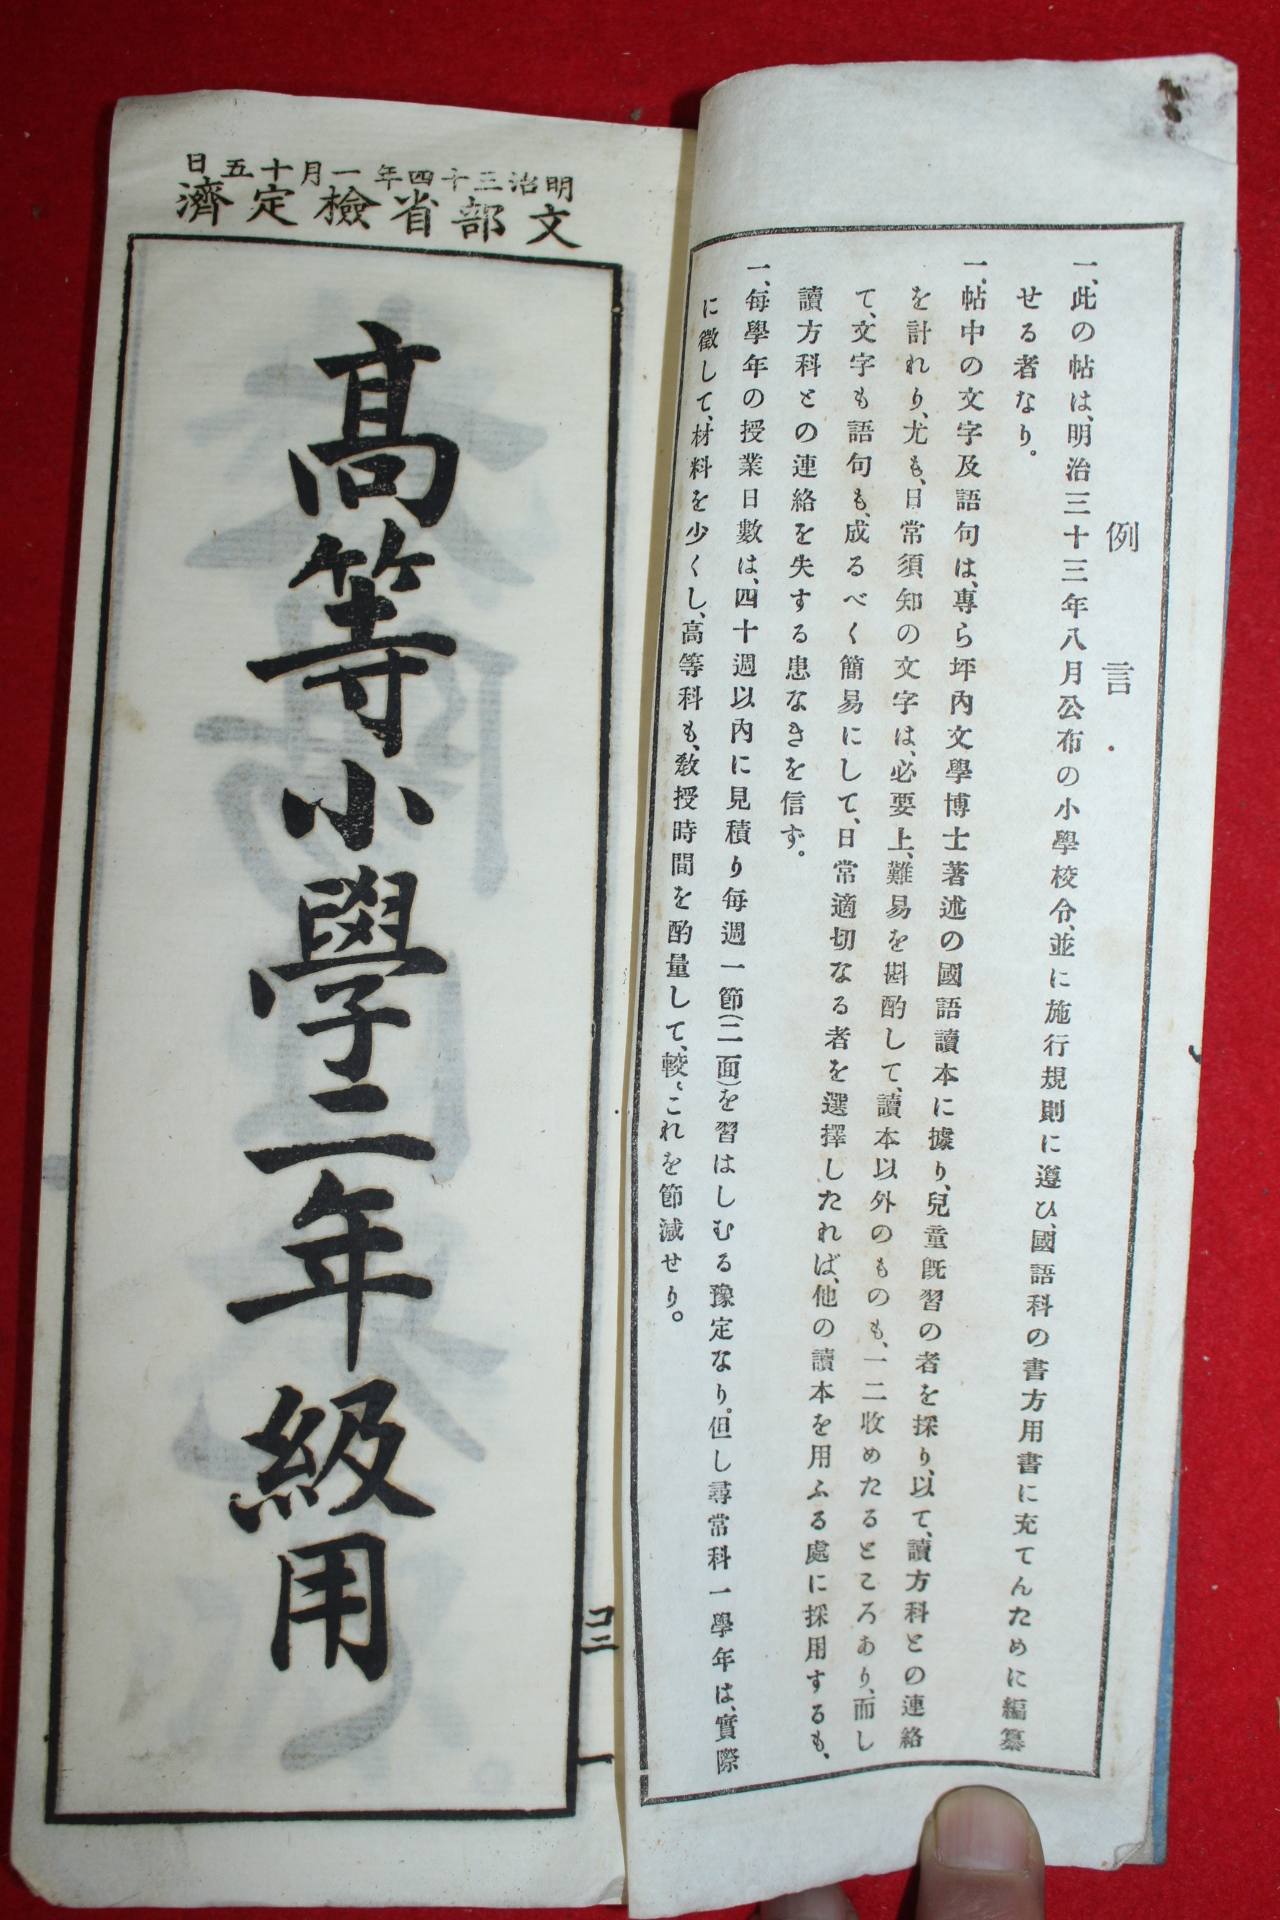 例言
一、此の帖は、明治三十三年八月公布の小學校令、並に施行規則に遵ひ、國語科の書方用書に充てんために編纂
せる者なり。
一、帖中の文字及語句は、專ら坪內文學博士著述の國語讀本に據り、兒童旣習の者を採り、以て、讀方科との連絡
を計れり、尤も、日常須知の文字は、必要上、難易を斟酌して、讀本以外のものも、一二收めたるところあり、而し
て、文字も語句も、成るべく簡易にして、日常適切なる者を選擇したれば、他の讀本を用ふる處に採用するも、
讀方科との連絡を失する患なきを信ず。
一、每學年の授業日數は、四十週以內に見積り每週一節(二面)を習はしむる豫定なり。但し尋常科一學年は、實際
に徵して、材料を少くし、高等科も、敎授時間を酌量して、較〻これを節減せり。
明治三十四年一月十五日
文部省檢定濟
高等小學二年級用
コ三
一